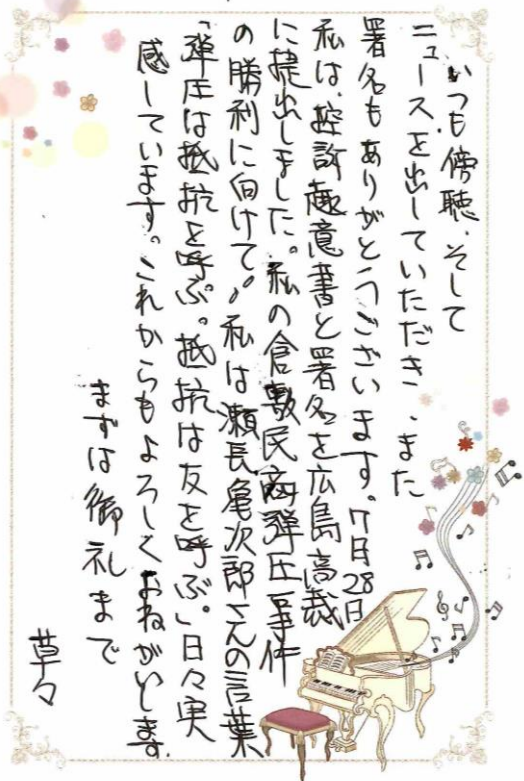 いつも傍聴、そして
ニュースを出していただき、また
署名もありがとうございます。7月28日
私は、控訴趣意書と署名を広島高裁
に提出しました。私の倉敷民商弾圧事件
の勝利に向けて〃私は瀬長亀次郎さんの言葉
「弾圧は抵抗を呼ぶ。抵抗は友を呼ぶ。」日々実
感しています。これからもよろしくおねがいします。
まずは御礼まで
草々